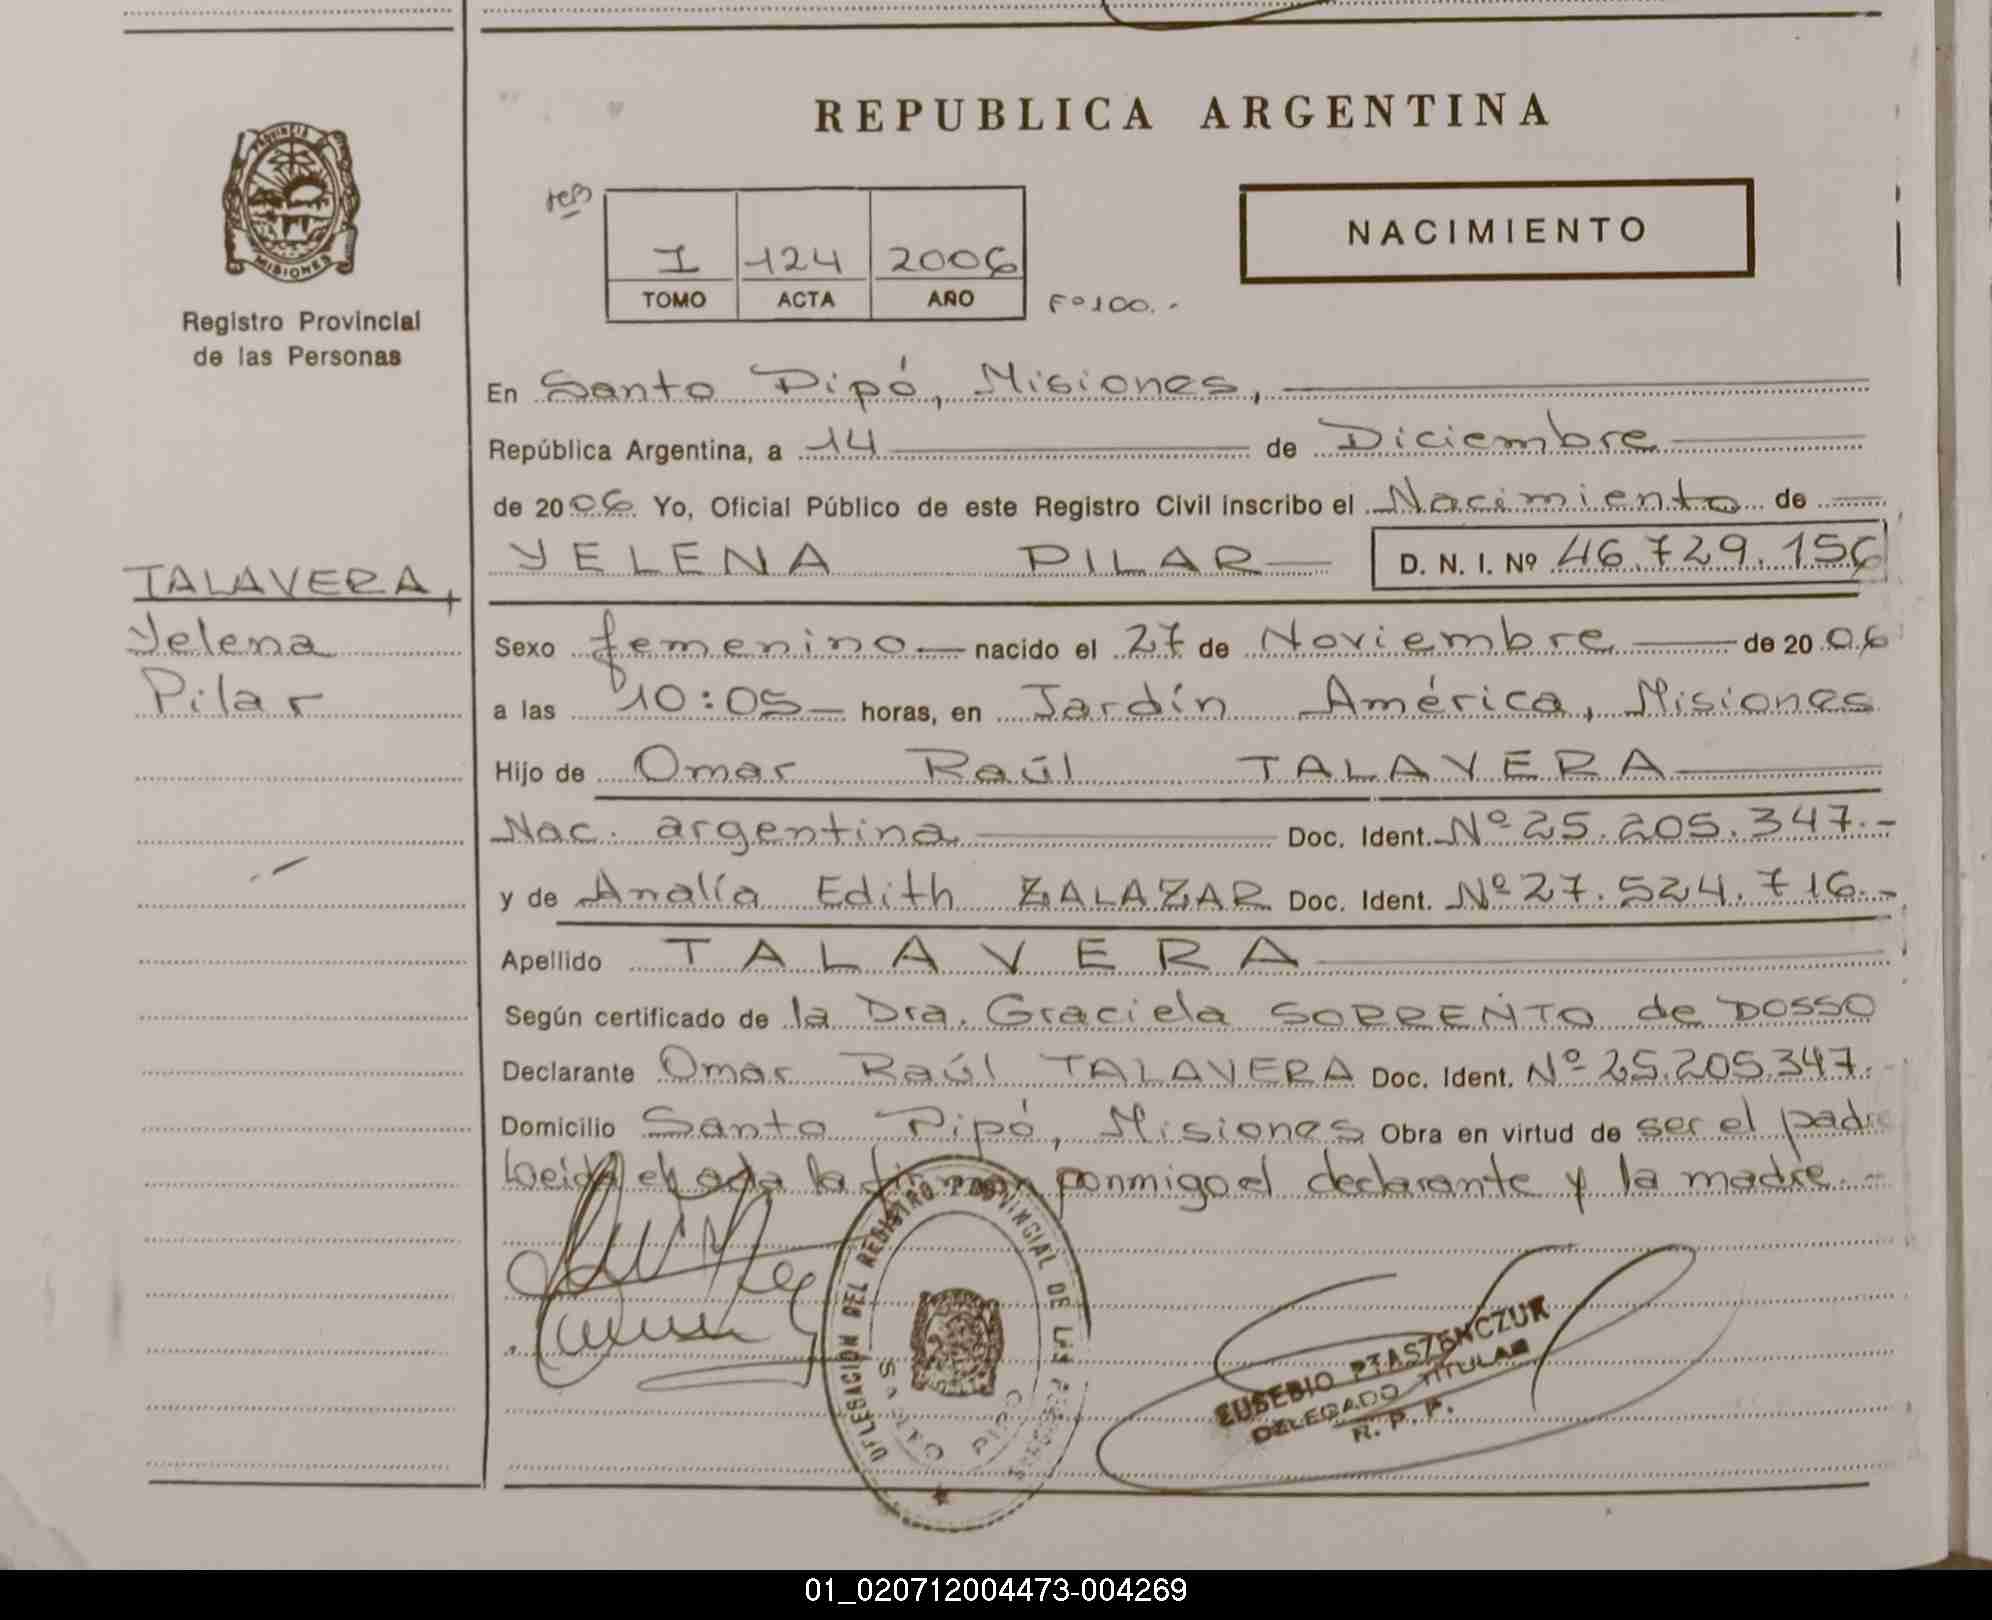 REPUBLICA ARGENTINA
PROVINCIA
MISIONES
Registro Provincial
de las Personas
NACIMIENTO
I 124 2006
TOMO ACTA AÑO
Fº 100.-
En Santo Pipó, Misiones,
República Argentina, a 14 de Diciembre
de 2006 Yo, Oficial Público de este Registro Civil inscribo el Nacimiento de
YELENA PILAR D. N. I. Nº 46.729.156
TALAVERA,
Yelena
Pilar
Sexo femenino nacido el 27 de Noviembre de 2006
a las 10:05 horas, en Jardín América, Misiones
Hijo de Omar Raúl TALAVERA
Nac. argentina Doc. Ident. Nº 25.205.347.-
y de Analía Edith ZALAZAR Doc. Ident. Nº 27.524.716.-
Apellido TALAVERA
Según certificado de la Dra. Graciela SORRENTO de DOSSO
Declarante Omar Raúl TALAVERA Doc. Ident. Nº 25.205.347.-
Domicilio Santo Pipó, Misiones Obra en virtud de ser el padre
Leida el acta la firman conmigo el declarante y la madre.-
DELEGACION DEL REGISTRO PROVINCIAL DE LAS PERSONAS
SANTO PIPO
EUSEBIO PTASZENCZUK
DELEGADO TITULAR
R. P. P.
01_020712004473-004269